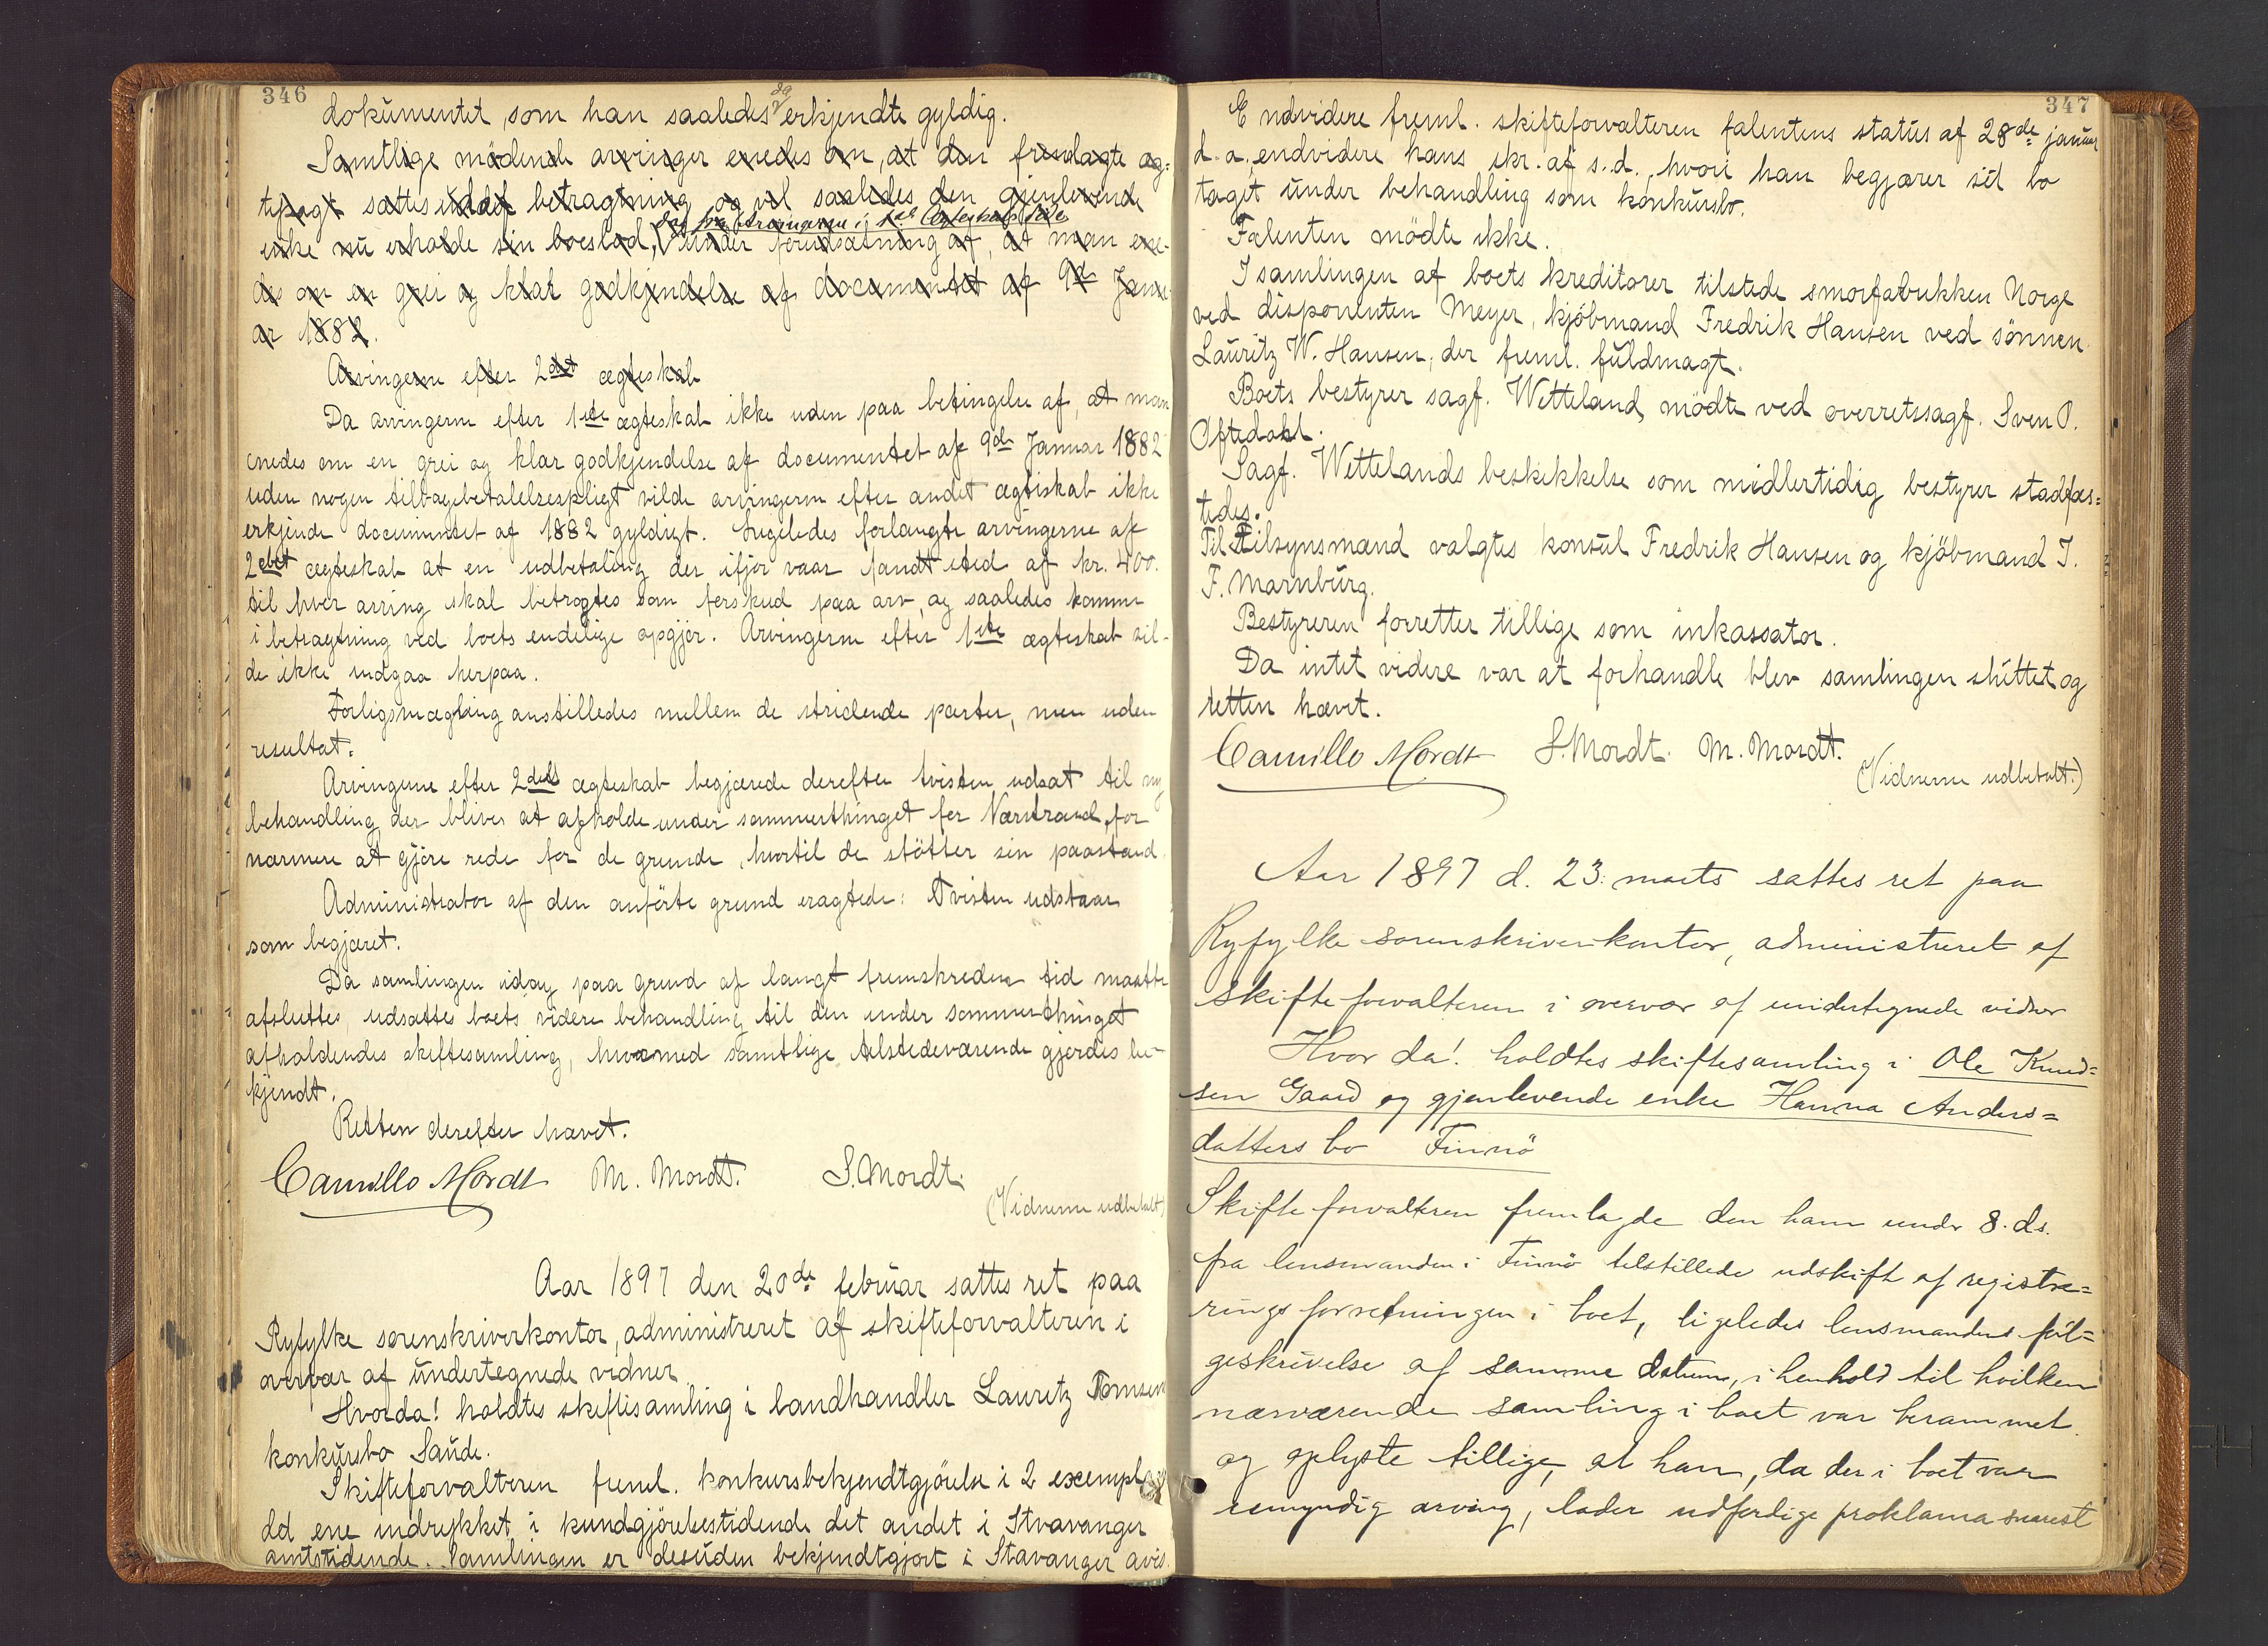 346
dokumentet, som han saaledes da erkjendte gyldig.
Samtlige mødende arvinger enedes om, at den fremlagte eg-
tepagt sattes ud af betragtning og vil saaledes den gjenlevende
enke nu erholde sin boeslod, under forudsætning af, at man ene-
des om en grei og klar godkjendelse af documentet af 9de Janu-
ar 1882.
Arvingerne efter 2det ægteskab
Da arvingerne efter 1ste ægteskab ikke uden paa betingelse af, at man
enedes om en grei og klar godkjendelse af documentet af 9de Januar 1882
uden nogen tilbagebetalelsespligt vilde arvingerne efter andet ægteskab ikke
erkjende documentet af 1882 gyldigt. Ligeledes forlangte arvingerne af
2det ægteskab at en udbetaling der ifjor vaar fandt sted af kr. 400.
til hver arving skal betragtes som forskud paa arv, og saaledes komme
i betragtning ved boets endelige opgjør. Arvingerne efter 1ste ægteskab vil-
de ikke indgaa herpaa.
Forligsmægling anstilledes mellem de stridende parter, men uden
resultat.
Arvingerne efter 2det ægteskab begjærede derefter tvisten udsat til ny
behandling der bliver at afholde under sommerthinget for Nærstrand, for
nærmere at gjøre rede for de grunde, hvortil de støtter sin paastand.
Administrator af den anførte grund eragtede: Tvisten udstaar
som begjæret.
Da samlingen idag paa grund af langt fremskreden tid maatte
afsluttes, udsattes boets videre behandling til den under sommerthinget
afholdendes skiftesamling, hvormed samtlige tilstedeværende gjordes be-
kjendt.
Retten derefter hævet.
Camillo Mordt M. Mordt. S. Mordt.
(Vidnerne udbetalt)
Aar 1897 den 20de februar sattes ret paa
Ryfylke sorenskriverkontor, administreret af skifteforvalteren i
overvær af undertegnede vidner
Hvorda! holdtes skiftesamling i landhandler Lauritz Tomsens
konkursbo Saude.
Skifteforvalteren freml. konkursbekjendtgjørelse i 2 exempl
det ene indrykket i kundgjørelsestidende det andet i Stravanger
amtstidende. Samlingen er desuden bekjendtgjort i Stavanger avis.
347
Endvidere freml. skifteforvalteren falentens status af 28de januar
d.a. endvidere hans skr. af s.d., hvori han begjærer sit bo
taget under behandling som konkursbo.
Falenten mødte ikke.
I samlingen af boets kreditorer tilstede smørfabrikken Norge
ved disponenten Meyer, kjøbmand Fredrik Hansen ved sønnen
Lauritz W. Hansen, der freml. fuldmagt.
Boets bestyrer sagf. Wetteland mødte ved overretssagf. Sven O.
Oftedahl.
Sagf. Wettelands beskikkelse som midlertidig bestyrer stadfæs=
tedes.
Til Tilsynsmænd valgtes konsul Fredrik Hansen og kjøbmand I.
F. Marnburg.
Bestyreren forretter tillige som inkassator.
Da intet videre var at forhandle blev samlingen sluttet og
retten hævet.
Camillo Mordt S. Mordt. M. Mordt.
(Vidnerne udbetalt.)
Aar 1897 d. 23. marts sattes ret paa
Ryfylke sorenskriverkontor, administreret af
skifteforvalteren i overvær af undertegnede vidner
Hvor da! holdtes skiftesamling i Ole Knud=
sen Gaard og gjenlevende enke Hanna Anders=
datters bo Finnö
Skifteforvalteren fremlagde den ham under 8. ds.
fra lensmanden i Finnö tilstillede udskrift af registre=
ringsforretningen i boet, ligeledes lensmandens föl=
geskrivelse af samme datum, i henhold til hvilken
nærværende samling i boet var berammet
og oplyste tillige, at han, da der i boet var
umyndig arving, lader udferdige proklama snarest